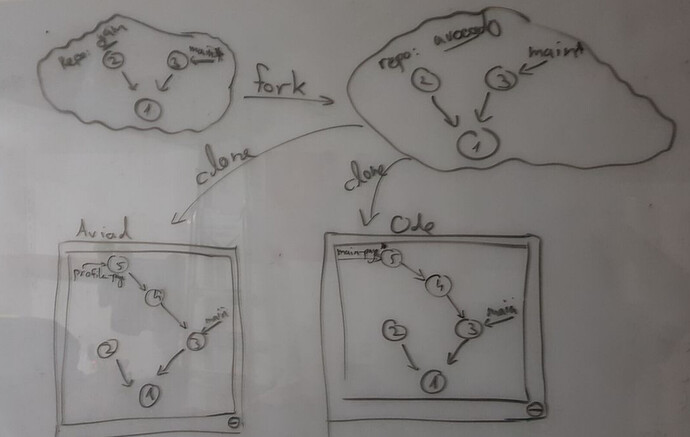 repo:
2
main
1
fork
repo: avocado
2
3
main
1
clone
clone
Aviad
5
profile-pg
4
main
3
2
1
Ode
main-pg
5
4
main
3
2
1